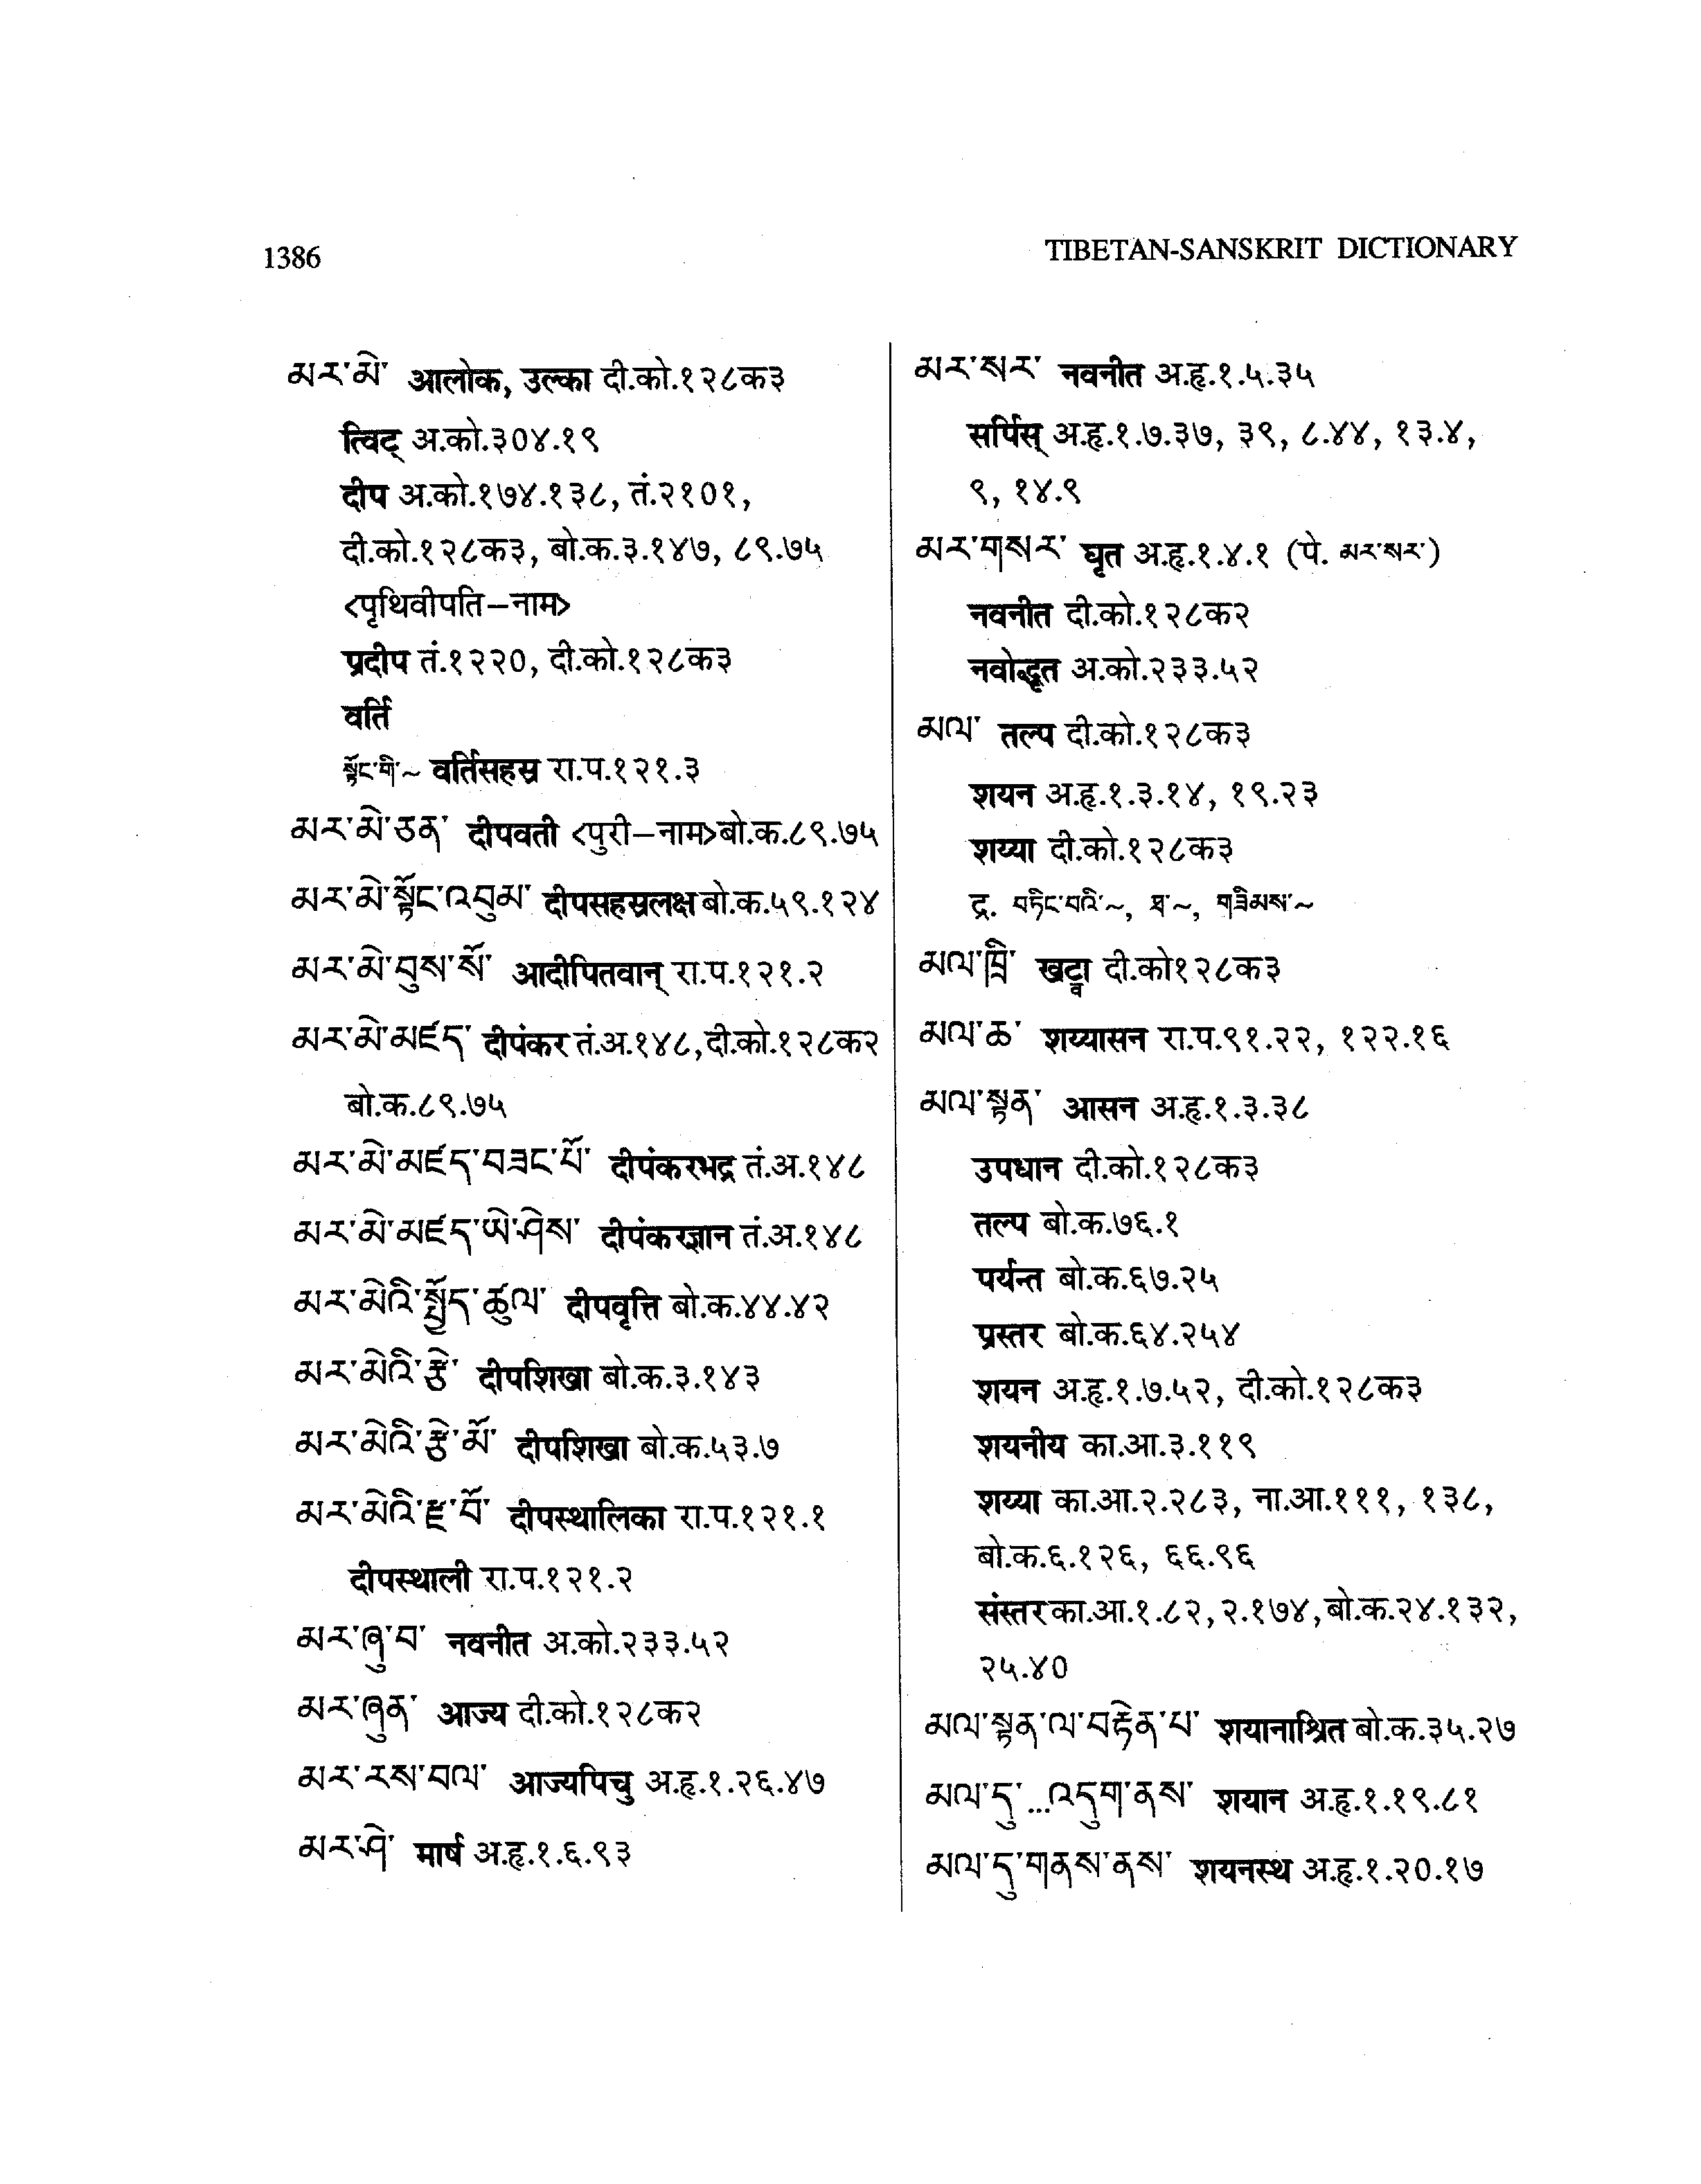 1386
TIBETAN-SANSKRIT DICTIONARY
མར་མེ་ आलोक, उल्का दी.को.१२८क३
त्विट् अ.को.३०४.१९
दीप अ.को.१७४.१३८, तं.२१०१,
दी.को.१२८क३, बो.क.३.१४७, ८९.७५
<पृथिवीपति–नाम>
प्रदीप तं.१२२०, दी.को.१२८क३
वर्ति
སྟོང་གི་~ वर्तिसहस्र रा.प.१२१.३
མར་མེ་ཅན་ दीपवती <पुरी–नाम>बो.क.८९.७५
མར་མེ་སྟོང་འབུམ་ दीपसहस्रलक्ष बो.क.५९.१२४
མར་མེ་བུས་སོ་ आदीपितवान् रा.प.१२१.२
མར་མེ་མཛད་ दीपंकर तं.अ.१४८,दी.को.१२८क२
बो.क.८९.७५
མར་མེ་མཛད་བཟང་པོ་ दीपंकरभद्र तं.अ.१४८
མར་མེ་མཛད་ཡེ་ཤེས་ दीपंकरज्ञान तं.अ.१४८
མར་མེའི་སྤྱོད་ཚུལ་ दीपवृत्ति बो.क.४४.४२
མར་མེའི་རྩེ་ दीपशिखा बो.क.३.१४३
མར་མེའི་རྩེ་མོ་ दीपशिखा बो.क.५३.७
མར་མེའི་རྫ་བོ་ दीपस्थालिका रा.प.१२१.१
दीपस्थाली रा.प.१२१.२
མར་ཞུ་བ་ नवनीत अ.को.२३३.५२
མར་ཞུན་ आज्य दी.को.१२८क२
མར་རས་བལ་ आज्यपिचु अ.हृ.१.२६.४७
མར་ཤེ་ मार्ष अ.हृ.१.६.९३
མར་སར་ नवनीत अ.हृ.१.५.३५
सर्पिस् अ.हृ.१.७.३७, ३९, ८.४४, १३.४,
९, १४.९
མར་གསར་ घृत अ.हृ.१.४.१ (पे. མར་སར་)
नवनीत दी.को.१२८क२
नवोद्धृत अ.को.२३३.५२
མལ་ तल्प दी.को.१२८क३
शयन अ.हृ.१.३.१४, १९.२३
शय्या दी.को.१२८क३
द्र. བཏིང་བའི་~, ཐ་~, གཟིམས་~
མལ་ཁྲི་ खट्वा दी.को१२८क३
མལ་ཆ་ शय्यासन रा.प.९१.२२, १२२.१६
མལ་སྟན་ आसन अ.हृ.१.३.३८
उपधान दी.को.१२८क३
तल्प बो.क.७६.१
पर्यन्त बो.क.६७.२५
प्रस्तर बो.क.६४.२५४
शयन अ.हृ.१.७.५२, दी.को.१२८क३
शयनीय का.आ.३.११९
शय्या का.आ.२.२८३, ना.आ.१११, १३८,
बो.क.६.१२६, ६६.९६
संस्तर का.आ.१.८२,२.१७४,बो.क.२४.१३२,
२५.४०
མལ་སྟན་ལ་བརྟེན་པ་ शयानाश्रित बो.क.३५.२७
མལ་དུ་...འདུག་ནས་ शयान अ.हृ.१.१९.८१
མལ་དུ་གནས་ནས་ शयनस्थ अ.हृ.१.२०.१७